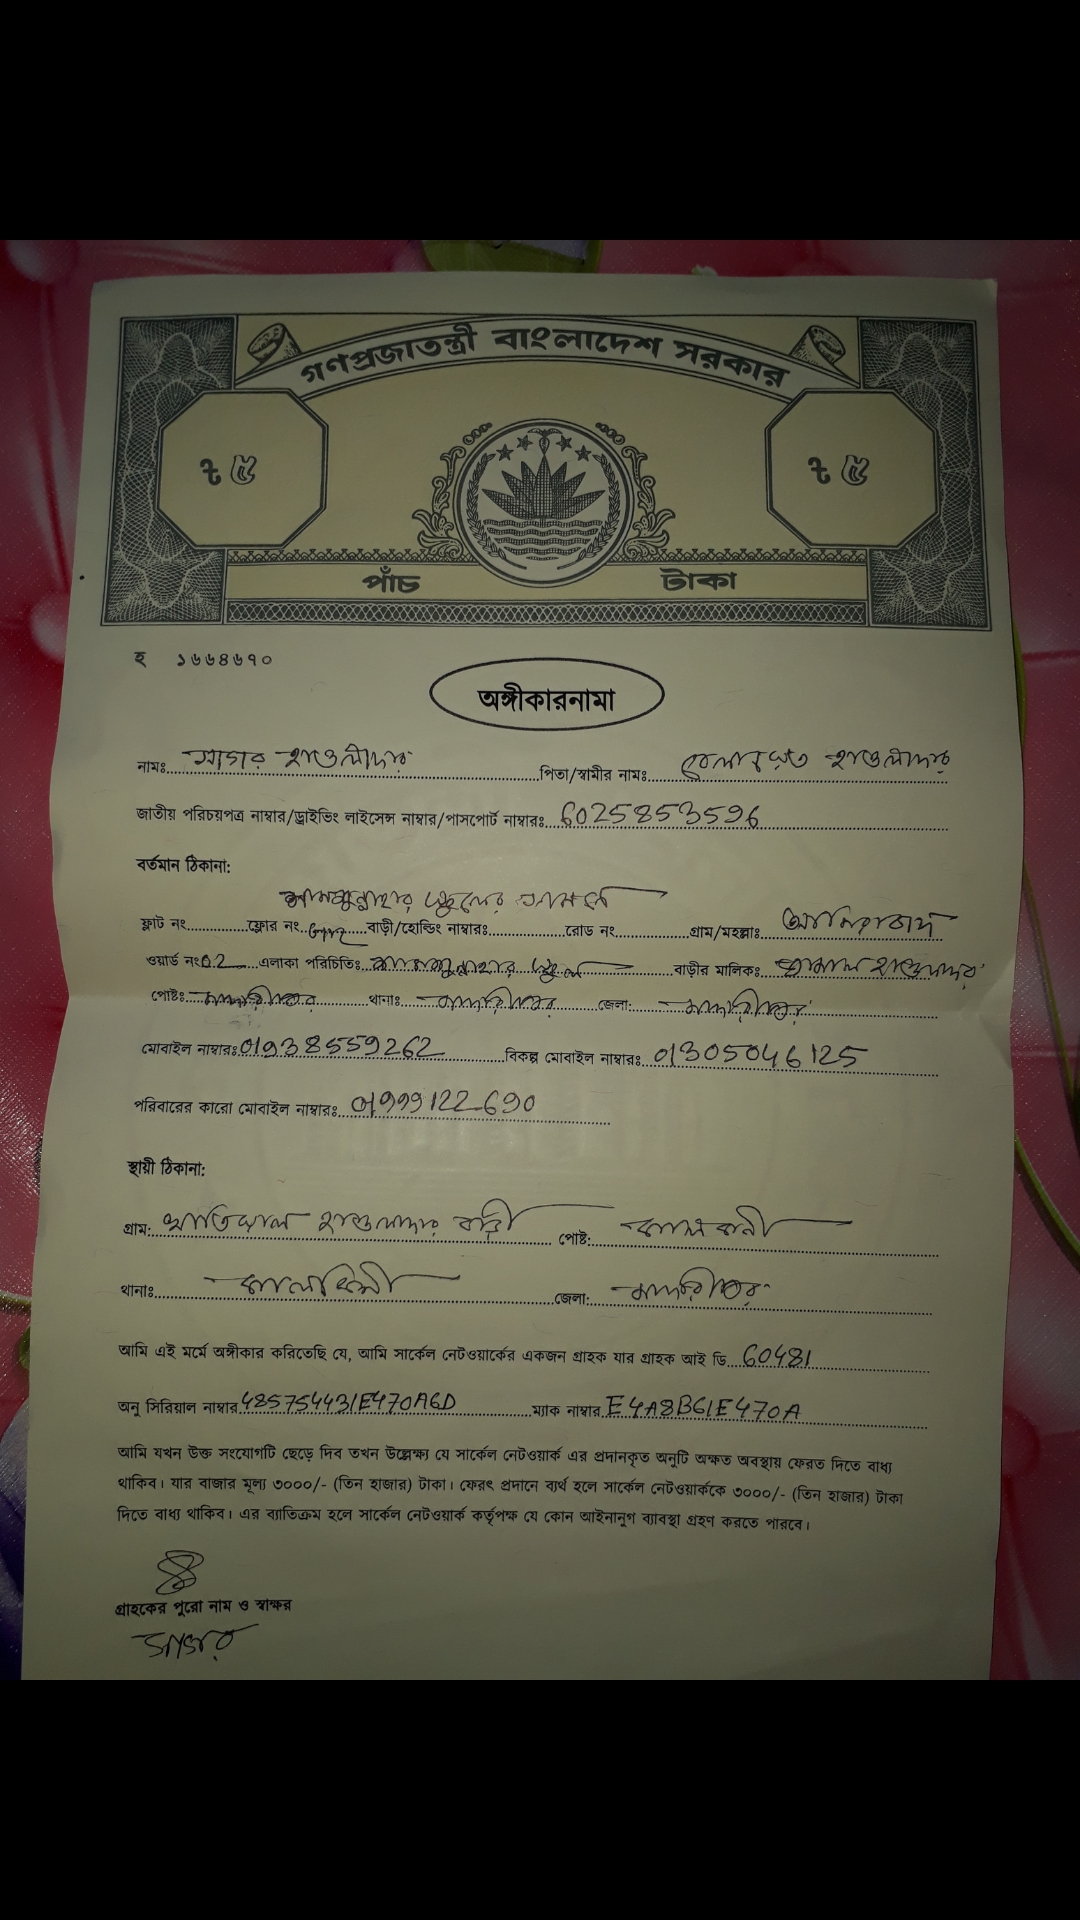 গণপ্রজাতন্ত্রী বাংলাদেশ সরকার
৳ ৫ ৳ ৫
পাঁচ টাকা
হ ১৬৬৪৬৭০
অঙ্গীকারনামা
নামঃ সাগর হাওলাদার পিতা/স্বামীর নামঃ বেলায়েত হাওলাদার
জাতীয় পরিচয়পত্র নাম্বার/ড্রাইভিং লাইসেন্স নাম্বার/পাসপোর্ট নাম্বারঃ 6025853596
বর্তমান ঠিকানা:
স্কুলের
ফ্লাট নং ফ্লোর নং বাড়ী/হোল্ডিং নাম্বারঃ রোড নং গ্রাম/মহল্লাঃ
ওয়ার্ড নং 02 এলাকা পরিচিতিঃ স্কুল বাড়ীর মালিকঃ হাওলাদার
পোষ্টঃ মাদারীপুর থানাঃ মাদারীপুর জেলা: মাদারীপুর
মোবাইল নাম্বারঃ 01938559262 বিকল্প মোবাইল নাম্বারঃ 01305046125
পরিবারের কারো মোবাইল নাম্বারঃ 01999122690
স্থায়ী ঠিকানা:
গ্রাম: হাওলাদার বাড়ী পোষ্ট:
থানাঃ কালকিনী জেলা: মাদারীপুর
আমি এই মর্মে অঙ্গীকার করিতেছি যে, আমি সার্কেল নেটওয়ার্কের একজন গ্রাহক যার গ্রাহক আই ডি 60481
অনু সিরিয়াল নাম্বার 485754431E470A6D ম্যাক নাম্বার E4A8B61E470A
আমি যখন উক্ত সংযোগটি ছেড়ে দিব তখন উল্লেক্ষ্য যে সার্কেল নেটওয়ার্ক এর প্রদানকৃত অনুটি অক্ষত অবস্থায় ফেরত দিতে বাধ্য
থাকিব। যার বাজার মূল্য ৩০০০/- (তিন হাজার) টাকা। ফেরৎ প্রদানে ব্যর্থ হলে সার্কেল নেটওয়ার্ককে ৩০০০/- (তিন হাজার) টাকা
দিতে বাধ্য থাকিব। এর ব্যাতিক্রম হলে সার্কেল নেটওয়ার্ক কর্তৃপক্ষ যে কোন আইনানুগ ব্যাবস্থা গ্রহণ করতে পারবে।
গ্রাহকের পুরো নাম ও স্বাক্ষর
সাগর